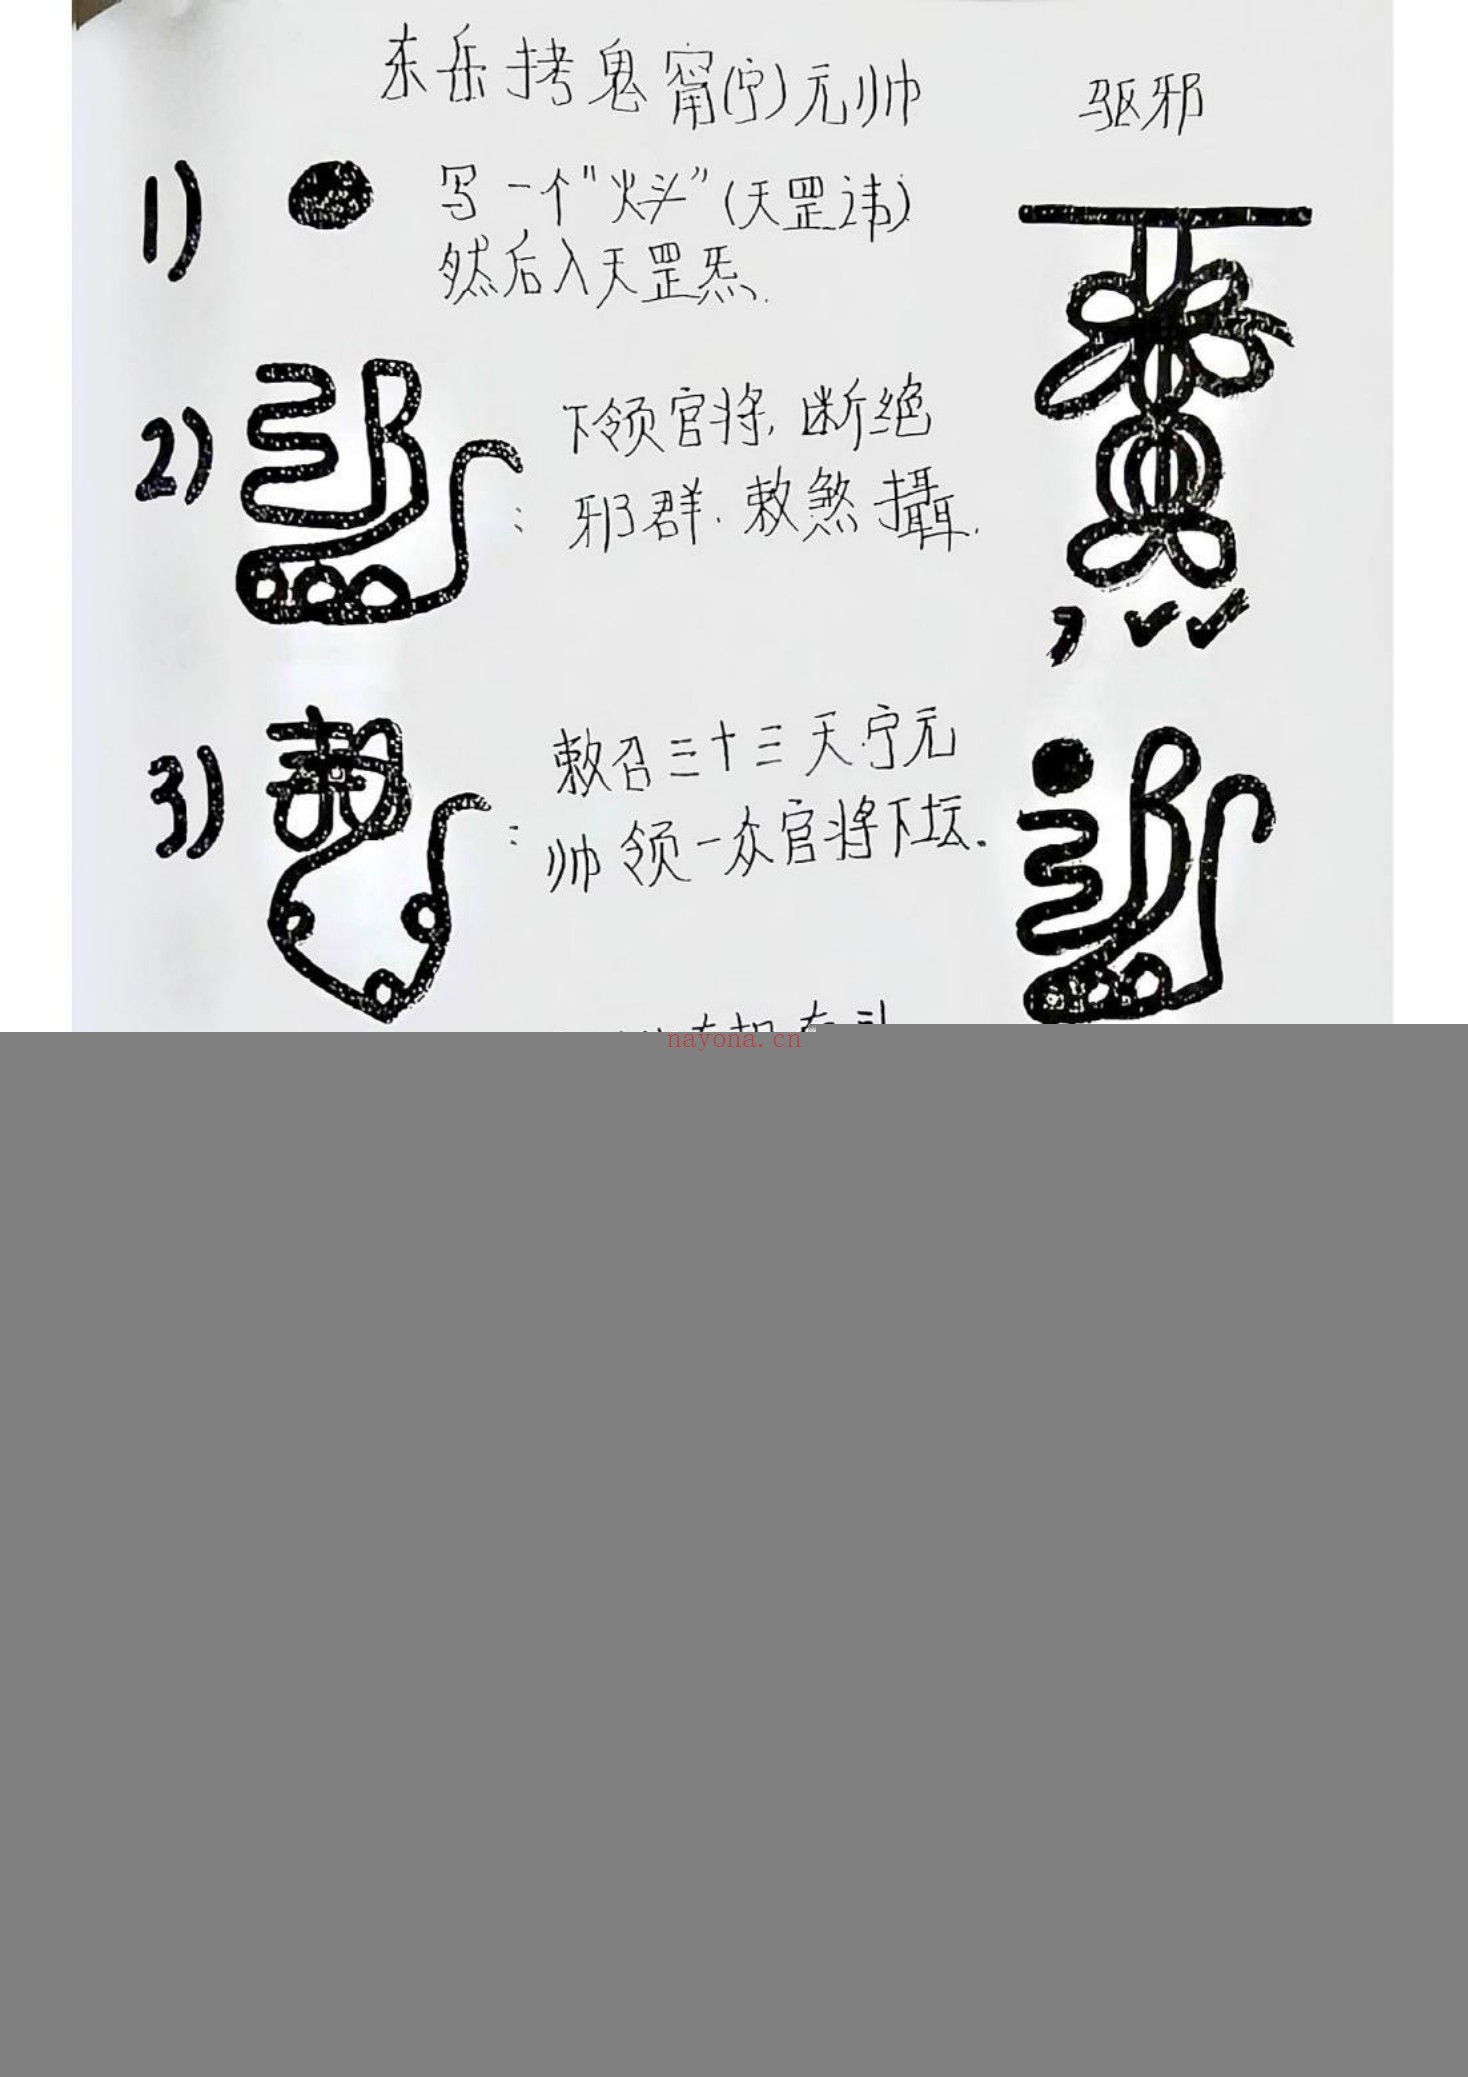 东岳拷鬼甯(宁)元帅
驱邪
1)
写一个"火斗"(天罡讳)
然后入天罡炁.
2)
: 下领官将,断绝
邪群.敕煞攝.
3)
: 敕召三十三天宁元
帅领一众官将下坛.
nayona.cn